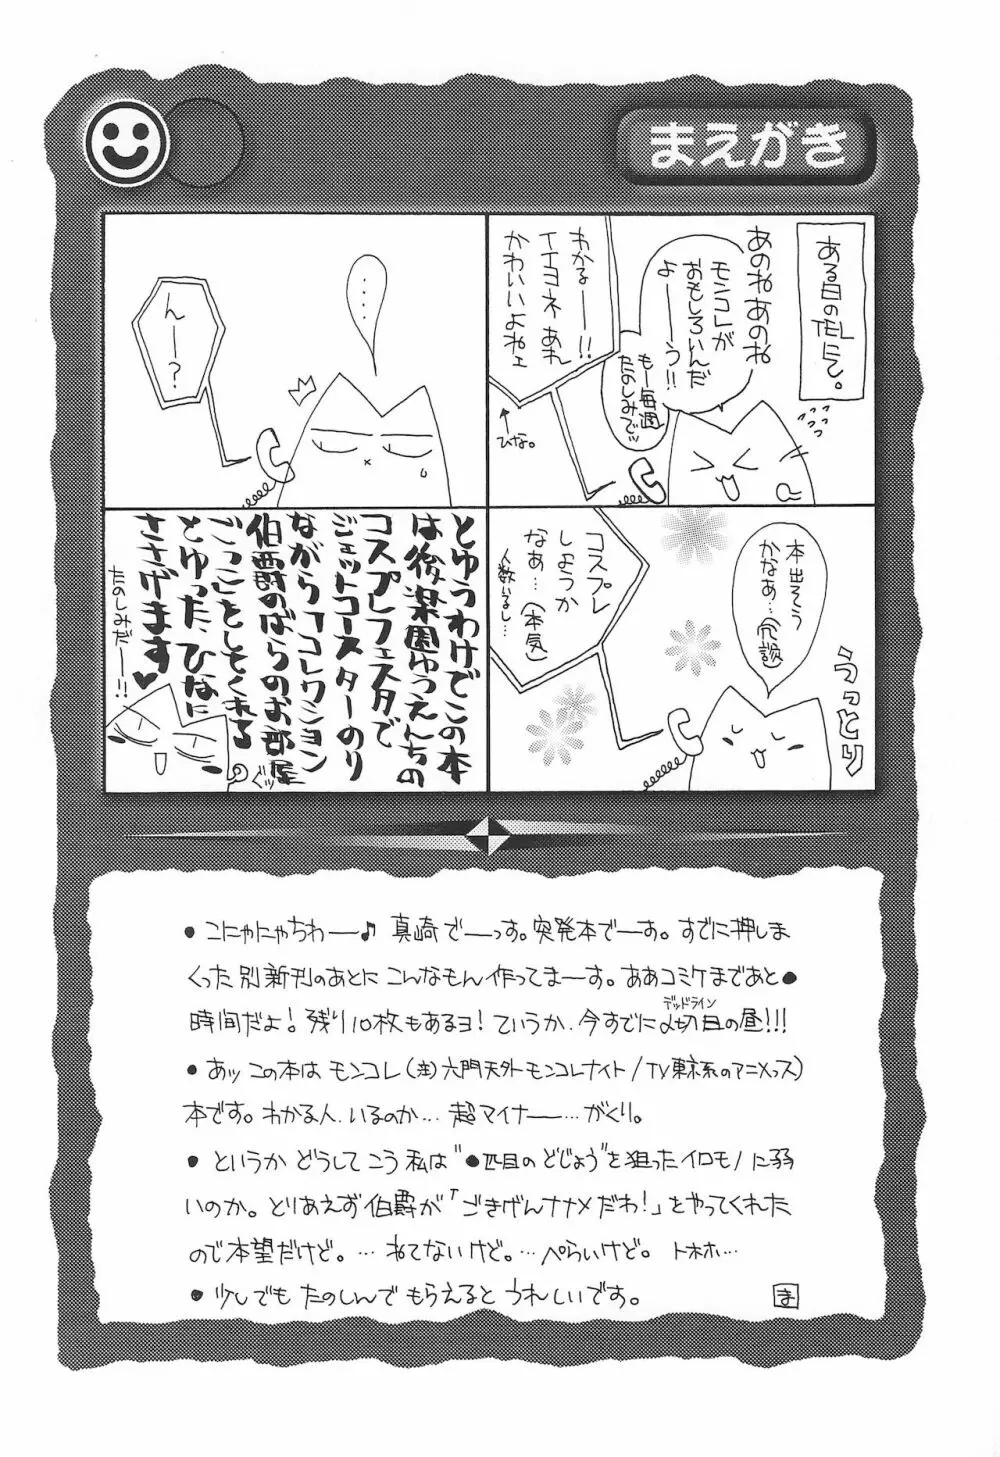 まえがき
ある日のTELにて。
あのねあのね
モンコレが
おもしろいんだ
よーーう!!
もー毎週
たのしみでッ
わかるーー!!
イイヨネ あれ
かわいいよねェ
ひな。
本出そう
かなぁ…(冗談)
うっとり
コスプレ
しようか
なぁ…(本気)
人数いるし…
……
んー?
とゆうわけでこの本
は後楽園ゆうえんちの
コスプレフェスタで
ジェットコースターのり
ながら「コレクション
伯爵のばらのお部屋
ごっことしてくれる
とゆった、ひなに
ささげます♥
たのしみだーー!!
グッ
●こにゃにゃちわーー♪ 真崎でーーっす。突発本でーーす。すでに押しま
くった別新刊のあとに こんなもん作ってまーーす。ああコミケまであと●
時間だよ! 残り10枚もあるヨ! ていうか、今すでに〆切日の昼!!!
デッドライン
●あッ この本は モンコレ(注)六門天外モンコレナイト/TV東京系のアニメっス)
本です。わかる人、いるのか… 超マイナーー…がくり。
●というか どうして こう 私は"●匹目のどじょう"を狙ったイロモノに弱
いのか。とりあえず伯爵が「ごきげんナナメだわ!」とやってくれた
ので本望だけど。… ねてないけど。… ぺらいけど。 トホホ…
●少しでも たのしんで もらえると うれしいです。
ま